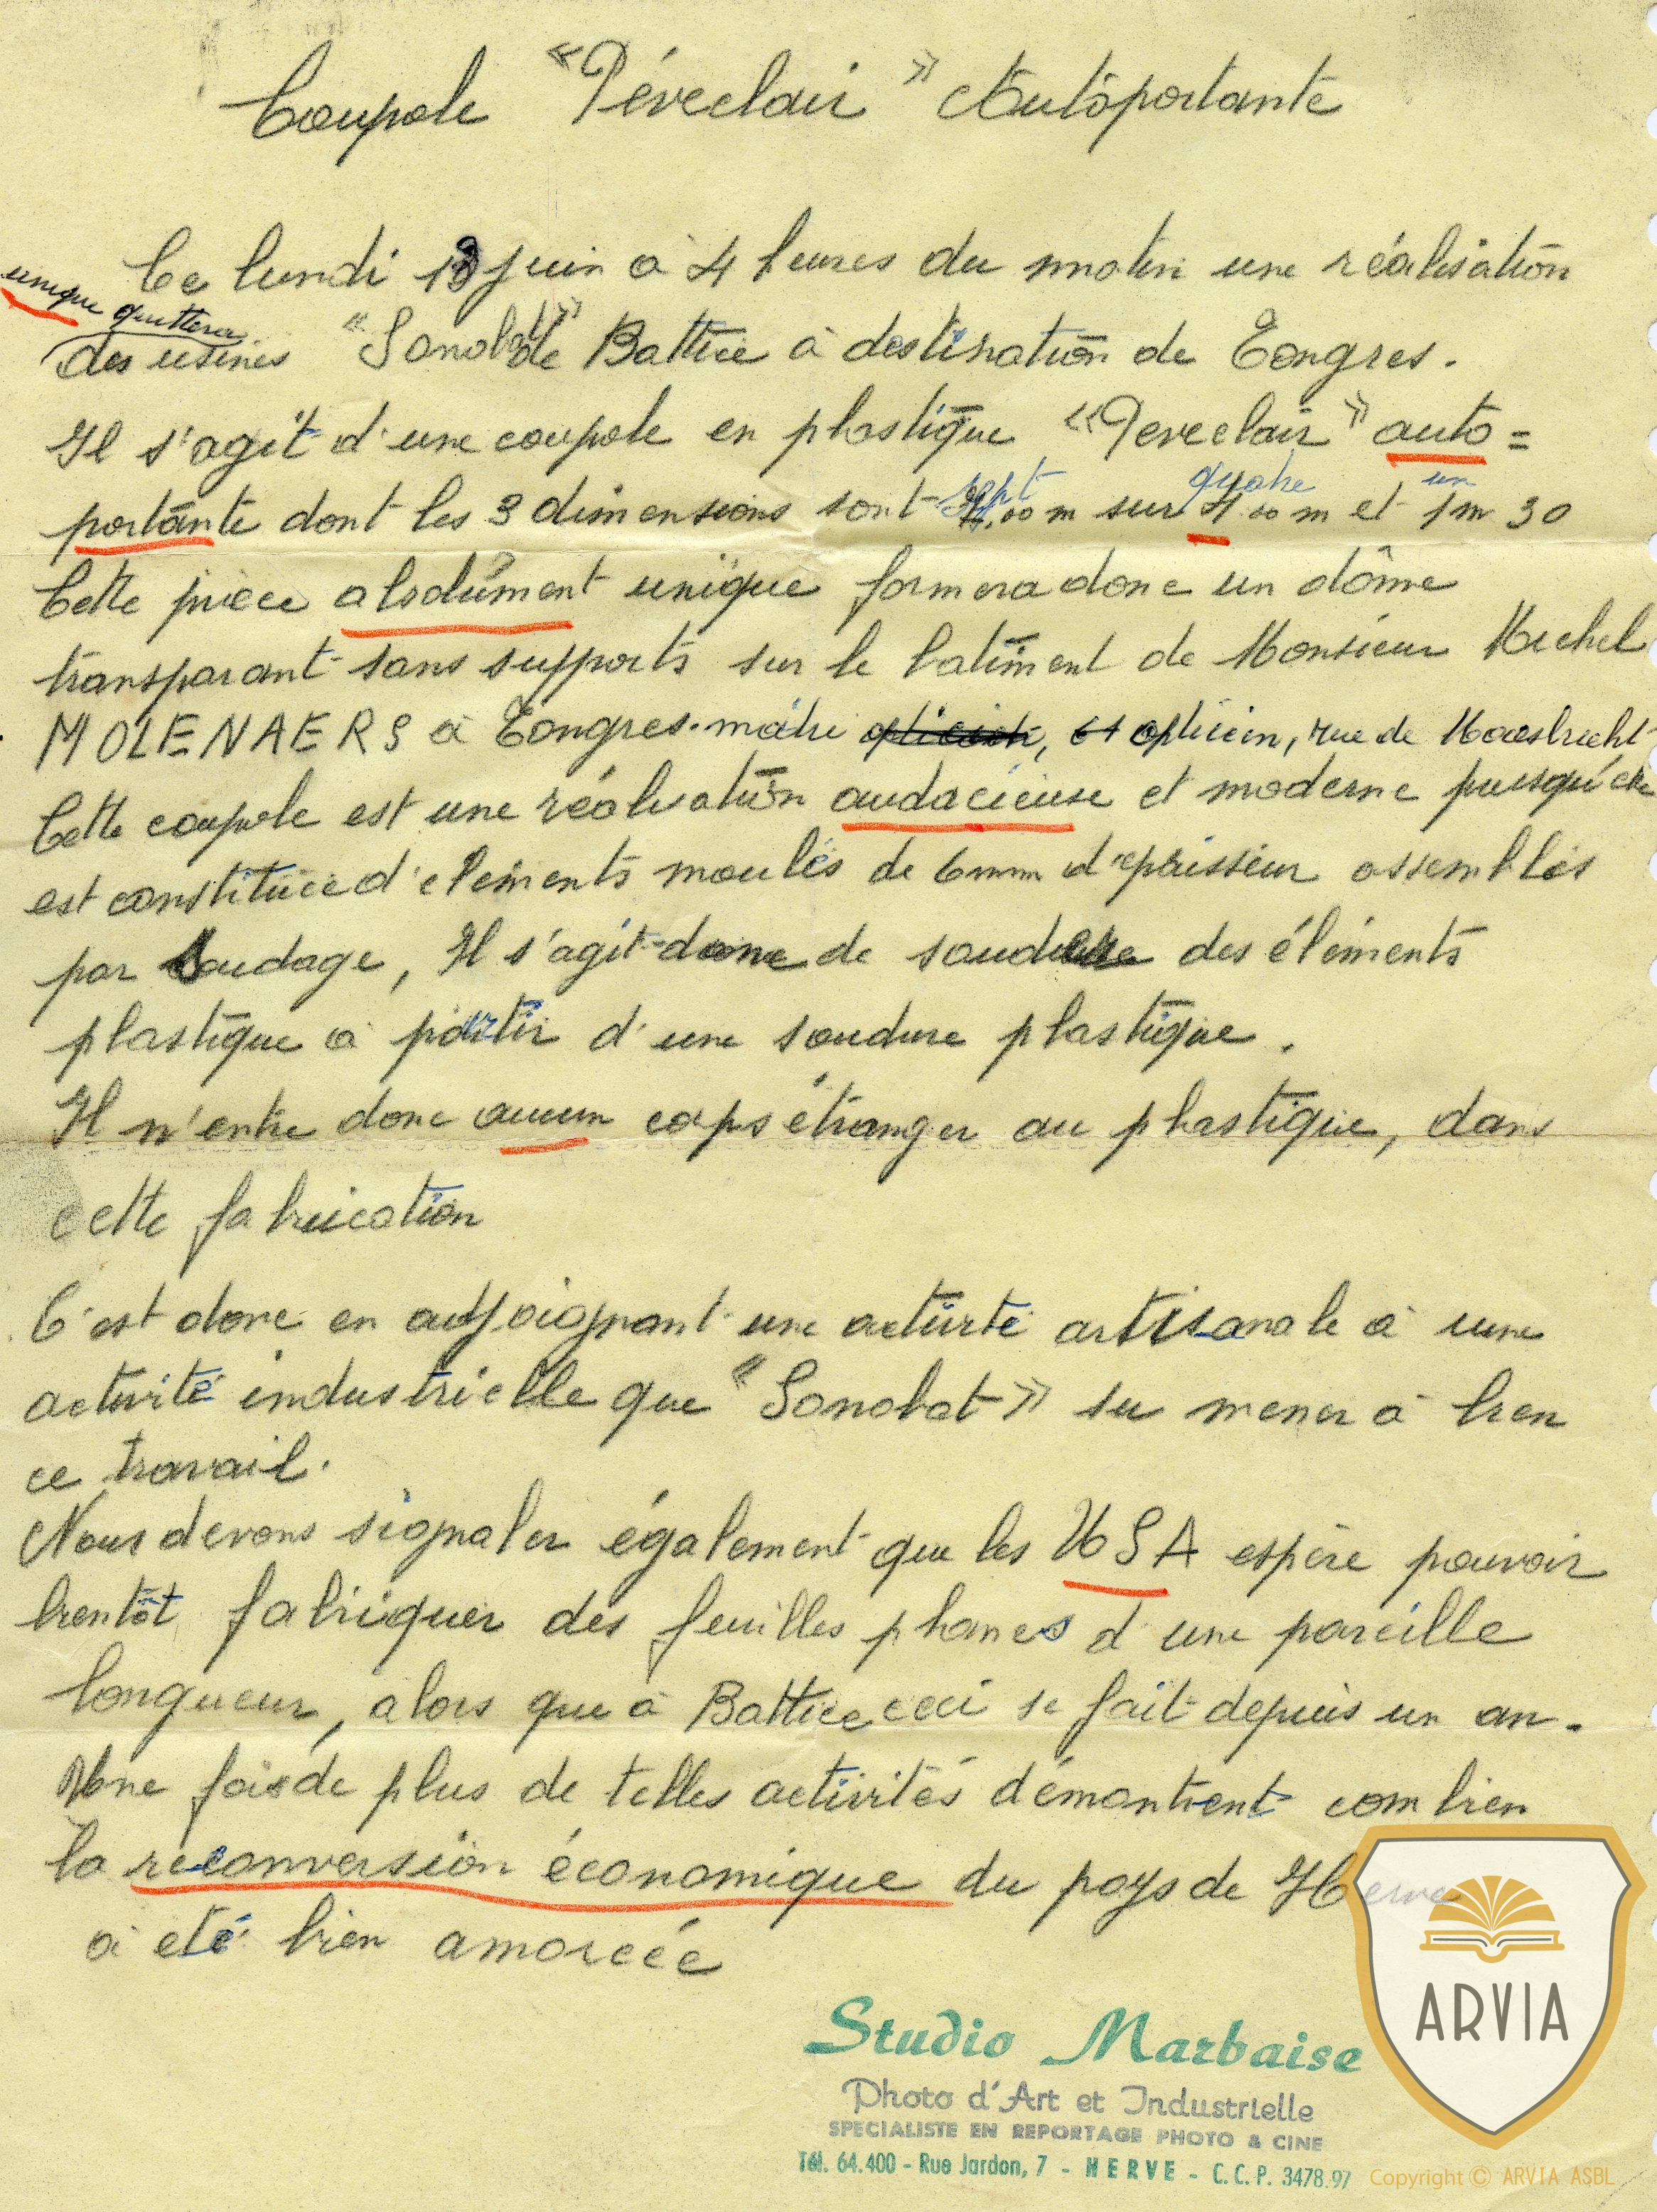 Coupole « Péveclair » Autoportante
Ce lundi 13 juin à 4 heures du matin une réalisation
unique quittera
des usines "Sonobat" de Battice à destination de Tongres.
Il s'agit d'une coupole en plastique « Peveclair » auto=
sept quatre un
portante dont les 3 dimensions sont 7,00 m sur 4.00 m et 1m 30
Cette pièce absolument unique formera donc un dôme
transparant sans supports sur le batiment de Monsieur Michel
MOLENAERS à Tongres. maître opticien, et opticien, rue de Maestricht
Cette coupole est une réalisation audacieuse et moderne puisqu'elle
est constituée d'élements moulés de 6mm d'épaisseur assemblés
par soudage, Il s'agit donc de soudure des éléments
plastique à partir d'une soudure plastique.
Il n'entre donc aucun corps étranger au plastique, dans
cette fabrication
C'est donc en adjoignant une activité artisanale à une
activité industrielle que « Sonobat » su mener à bien
ce travail.
Nous devons signaler également que les USA espère pouvoir
bientôt fabriquer des feuilles planes d'une pareille
longueur, alors que à Battice ceci se fait depuis un an.
Une fois de plus de telles activités démontrent combien
la reconversion économique du pays de Herve
a été bien amorcée
Studio Marbaise
Photo d'Art et Industrielle
SPECIALISTE EN REPORTAGE PHOTO & CINE
Tél. 64.400 - Rue Jardon, 7 - HERVE - C.C.P. 3478.97
ARVIA
Copyright © ARVIA ASBL